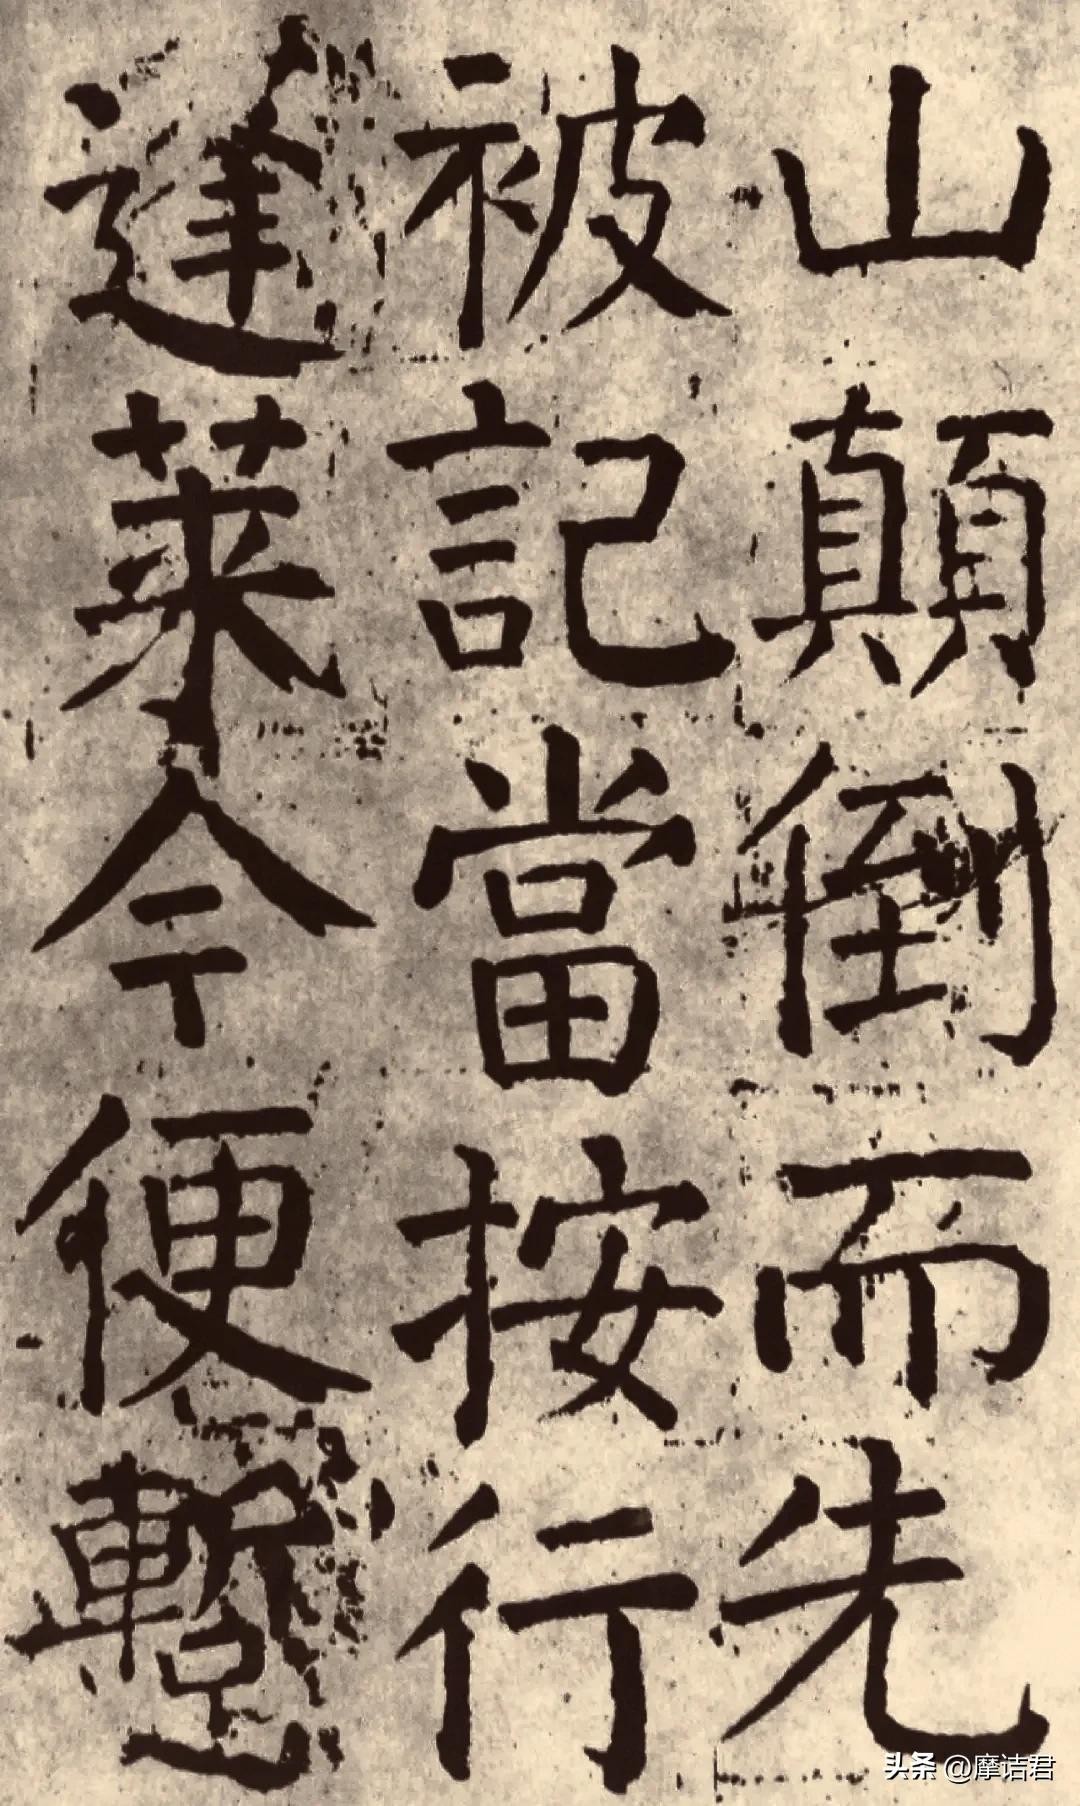 山顛倒而先
被記當按行
逢萊今便蹔
头条 @摩诘君